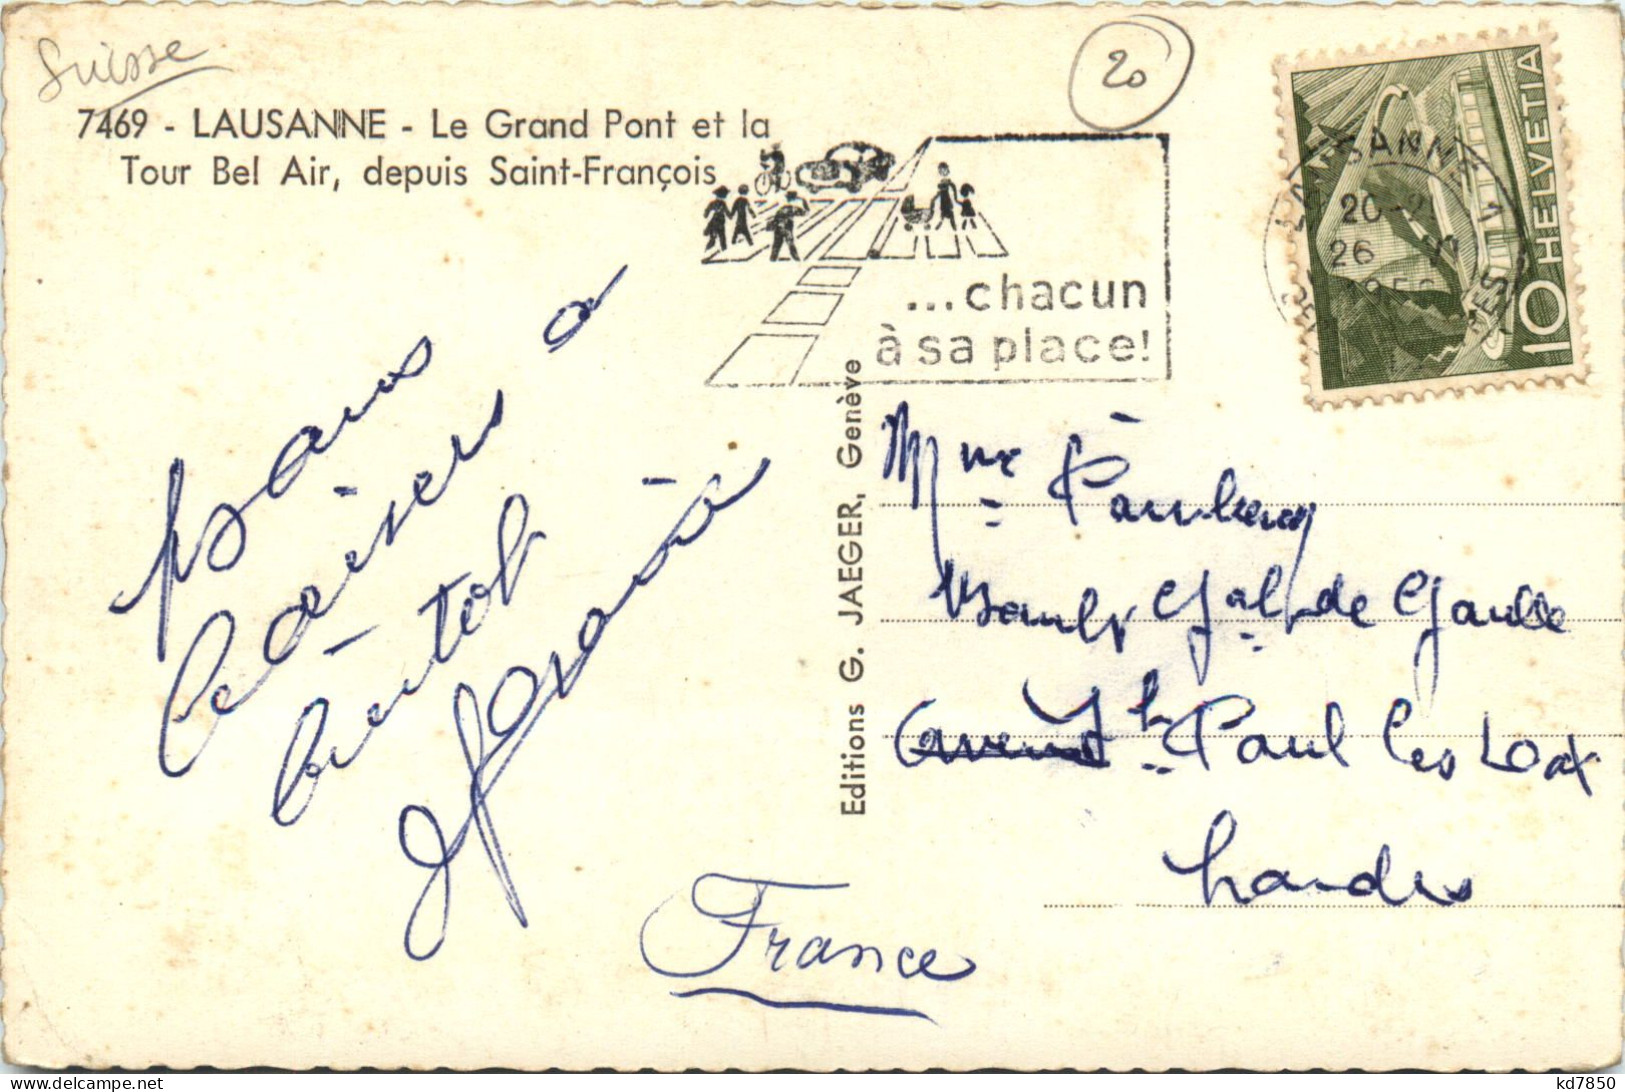 Suisse
20
7469 - LAUSANNE - Le Grand Pont et la
Tour Bel Air, depuis Saint-François
...chacun
à sa place!
LAUSANNE 1
20-2
26
HELVETIA
10
Bons
Baisers à
bientôt
Editions G. JAEGER, Genève
Mme
Gal de Gaulle
St Paul les Dax
Landes
France
kd7850